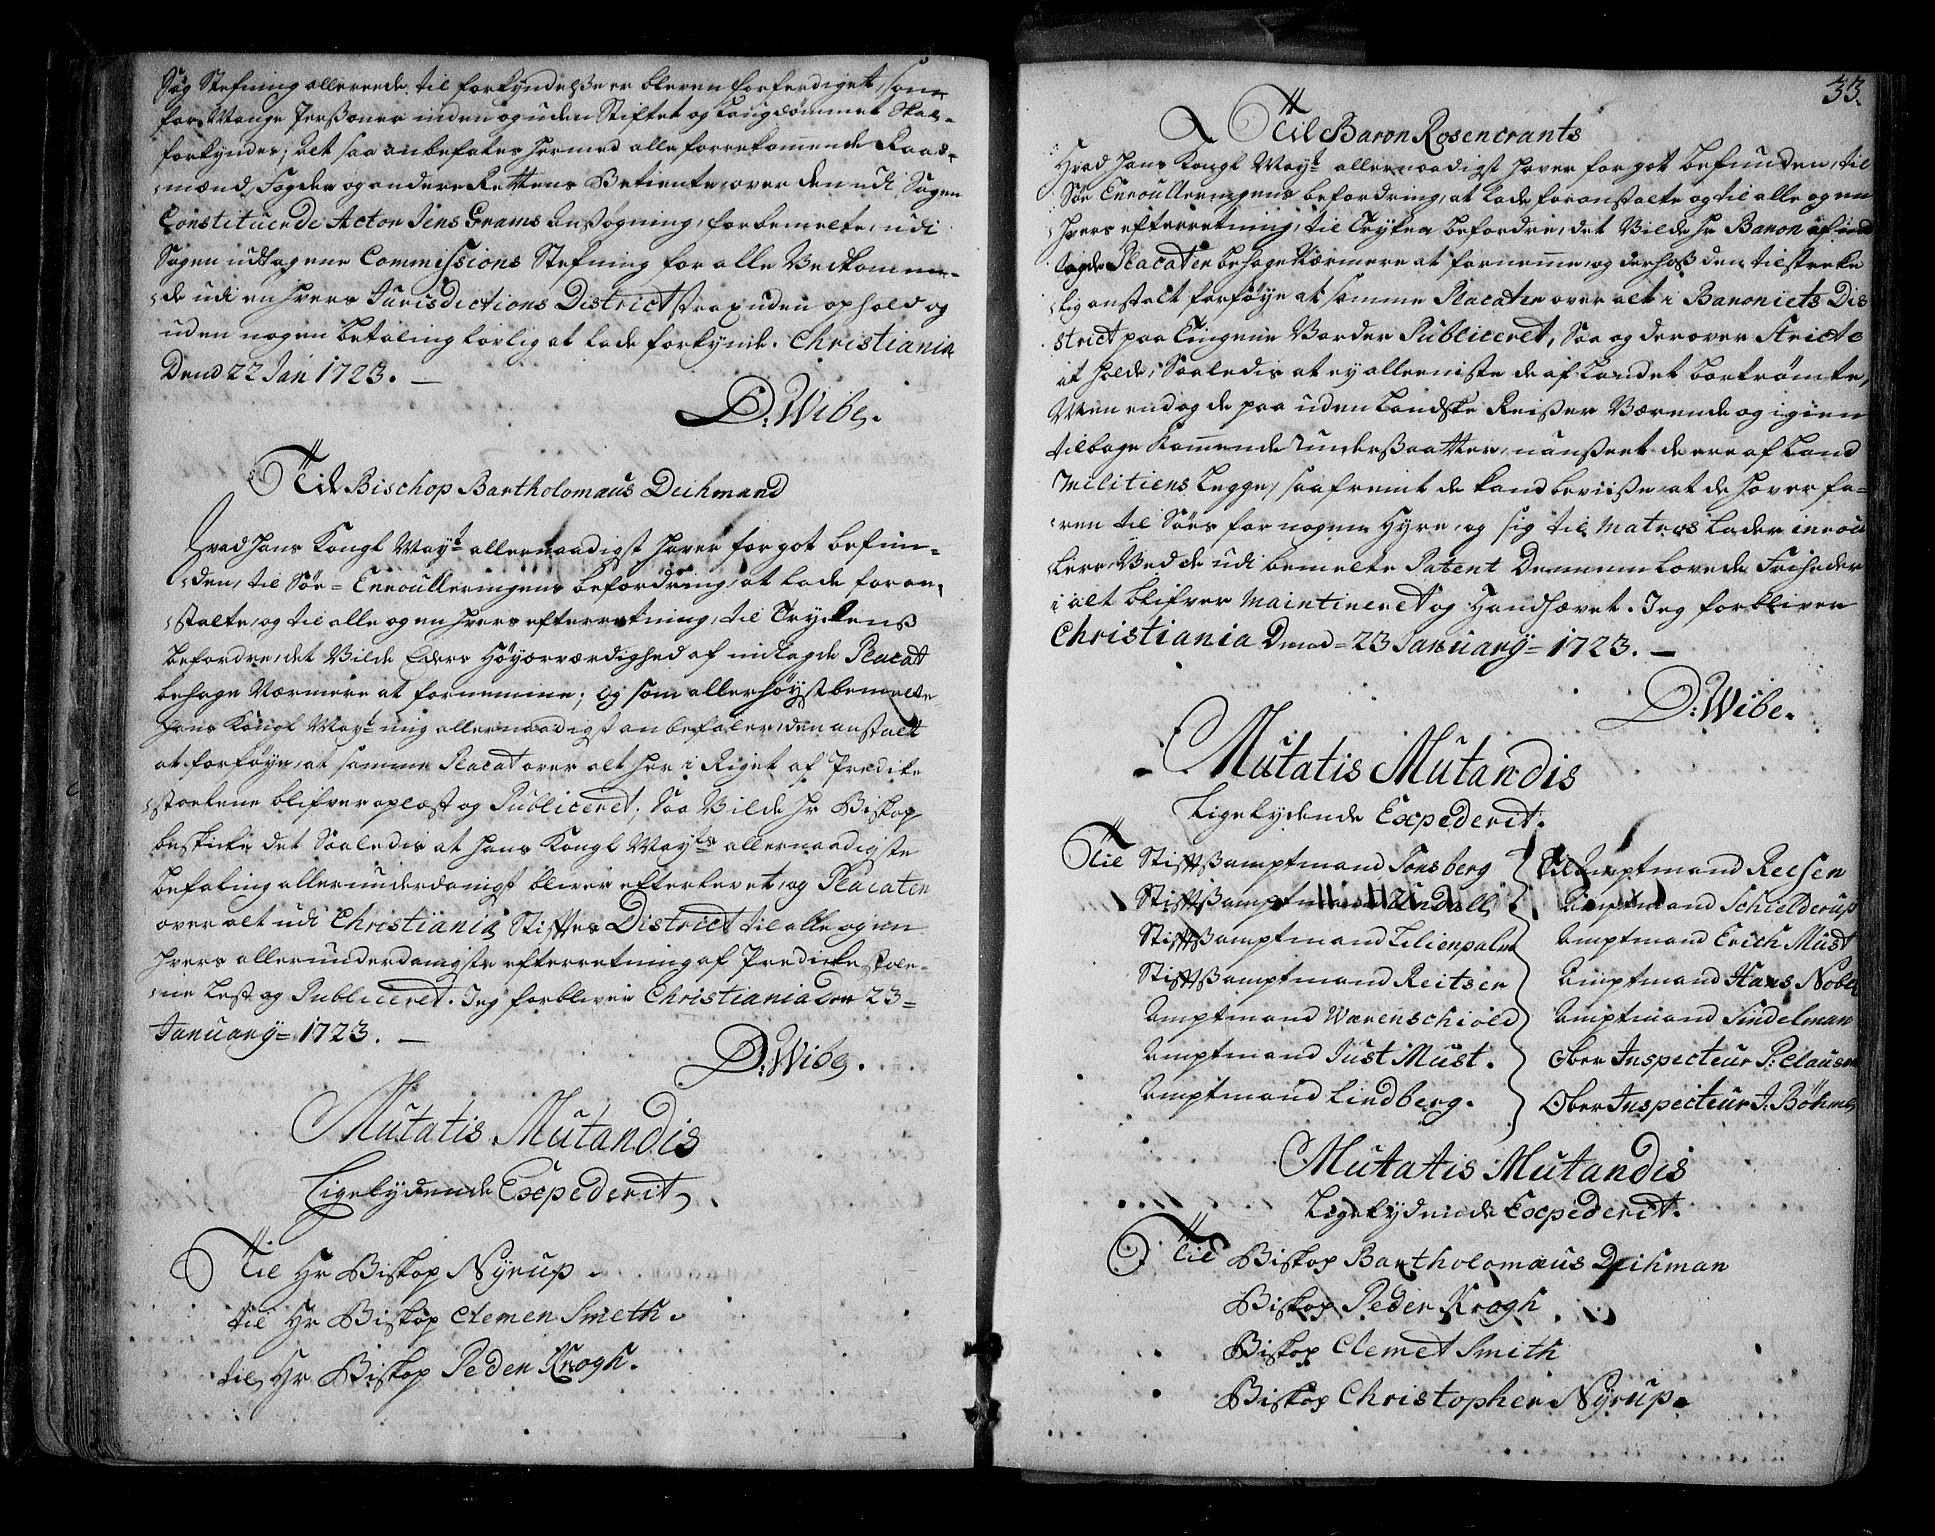 Søg Stefning allereede til forkyndelße er bleven forferdiget, som
for Mange Perßoner inden og uden Stiftet og Laugdømmet Skal
forkyndes; Alt saa anbefales hermed alle forrekommende Raad-
mænd, Fogder og andre Rettens Betiente over den udi Sagen
Constituerde Actor Jens Grams Anßøgning, forbemelte, udi
Sagen udtagene Commissions Stefning for alle Vedkommen-
de udi en hvers Jurisdictions District strax uden ophold og
uden nogen betaling lovlig at lade forkynde. Christiania
Dend 22 Jan 1723. —
D: Wibe.
Til Bischop Bartholomæus Deihmand
Hvad hans Kongl May:t allernaadigst haver for got befun-
den, til Søe-Enroulleringens befordring, at lade foran-
stalte, og til alle og en hvers efterretning, til Tryckens
befordre, det Vilde Eders Høyærværdighed af indlagde Placat
behage Nærmere at fornemme; og som allerhøyst bemelte
Hans Kongl May:t mig allernaadigst anbefaler, den anstalt
at forføye, at samme Placat over alt her i Riget af Predike
stoelene blifver oplæst og Publiceret; Saa Vilde Hr Biskop
beskicke det Saaledis at hans Kongl May:ts allernaadigste
befaling allerunderdanigst bliver efterlevet, og Placaten
over alt udi Christiania Stiftes District til alle og en
hvers allerunderdanigste efterretning af Predickestoele-
ne Lest og Publiceret. Jeg forbliver Christiania den 23=
January= 1723. —
D: Wibe.
Mutatis Mutandis
Ligelydende Expederit,
Til Hr Biskop Nyrup.
til Hr Biskop Clemen Smeth.
til Hr Biskop Peder Krogh.
33.
Til Baron Rosencrants
Hvad hans Kongl May:t allernaadigst haver for got befunden, til
Søe Enroulleringens befordring, at lade foranstalte og til alle og en
hvers efterretning, til Trycken befordre, det Vilde Hr Baron af ind
lagde Placaten behage Nærmere at fornemme, og derhoß den tilstrecke
lig anstalt forføye at samme Placaten over alt i Baroniets Dis
strict paa Tingene Vorder Publiceret, Saa og derover Stricte
at holde, Saaledis at ey alleeniste de af Landet bortrømte,
Men end og de paa uden Landske Reißer Værende og igien
tilbage Kommende Underßaatter, uanßeet de ere af Land
Militiens Legge, saafremt de kand beviiße at de haver fa-
ren til Søes for nogen Hyre, og sig til Matros Lader inroul
lere, Ved de udi bemelte Patent Dennem lovede Friheder
i alt blifver Maintineret og Handhævet. Jeg forbliver
Christiania Dend= 23 January= 1723. —
D: Wibe.
Mutatis Mutandis
Ligelydende Expederit.
Til Stiftsbamptmand Tonsberg
Stiftsbamptmand Undall,
Stiftsbamptmand Lilienpalm
Stiftsbamptmand Reitser
Amptmand Wærenschiold
Amptmand Just Must.
Amptmand Lindberg.
Til Amptmand Reesen
Amptmand Schielderup
Amptmand Erich Must
Amptmand Hans Nobel
Amptmand Sindelman
Ober Inspecteur P: Clausen
Ober Inspecteur J. Böhme
Mutatis Mutandis
Ligelydende Expederit.
Til Biskop Bartholomæus Deihman
Biskop Peder Krogh
Biskop Clemet Smith
Biskop Christopher Nyrup.